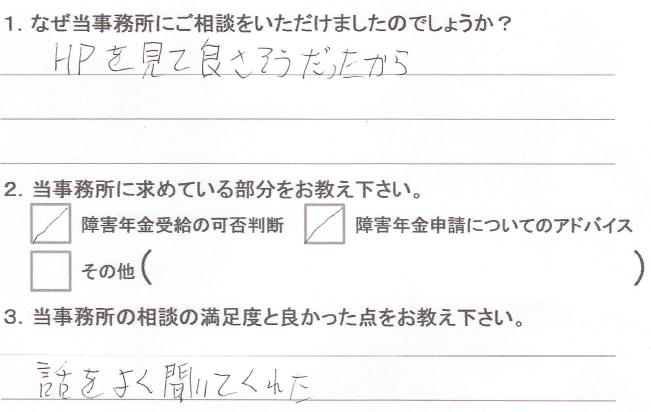 1. なぜ当事務所にご相談をいただけましたのでしょうか?
HPを見て良さそうだったから
2. 当事務所に求めている部分をお教え下さい。
障害年金受給の可否判断 障害年金申請についてのアドバイス
その他( )
3. 当事務所の相談の満足度と良かった点をお教え下さい。
話をよく聞いてくれた